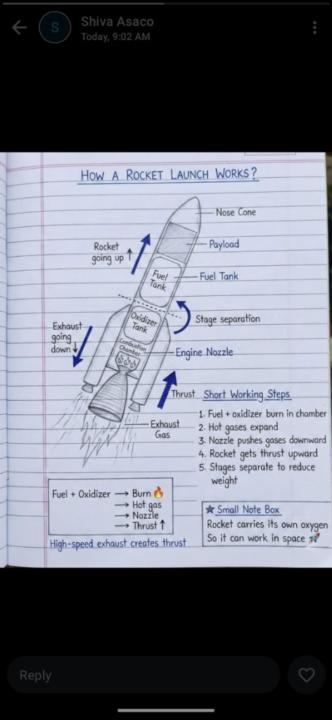 Shiva Asaco
Today, 9:02 AM
HOW A ROCKET LAUNCH WORKS?
Nose Cone
Rocket
going up ↑
Payload
Fuel
Tank
Fuel Tank
Oxidizer
Tank
Stage separation
Exhaust
going
down ↓
Combustion
Chamber
Engine Nozzle
Thrust
Exhaust
Gas
Short Working Steps
1. Fuel + oxidizer burn in chamber
2. Hot gases expand
3. Nozzle pushes gases downward
4. Rocket gets thrust upward
5. Stages separate to reduce
weight
Fuel + Oxidizer → Burn 🔥
→ Hot gas
→ Nozzle
→ Thrust ↑
High-speed exhaust creates thrust
★ Small Note Box
Rocket carries its own oxygen
So it can work in space 🚀
Reply